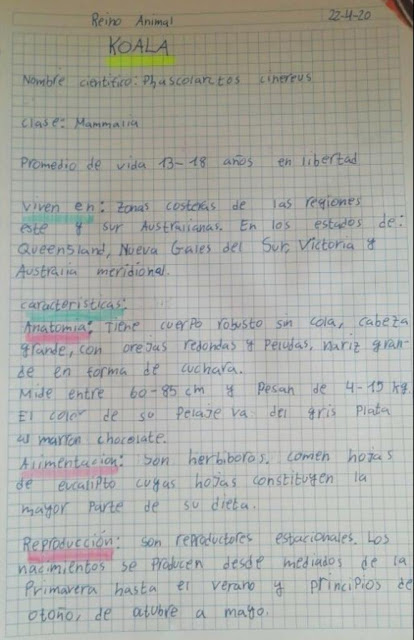 Reino Animal
22-4-20
KOALA
Nombre cientifico: Phascolarctos cinereus
Clase: Mammalia
Promedio de vida 13-18 años en libertad
Viven en: Zonas costeras de las regiones
este y sur Australianas. En los estados de:
Queensland, Nueva Gales del Sur, Victoria y
Australia meridional.
Caracteristicas:
Anatomia: Tiene cuerpo robusto sin cola, cabeza
grande, con orejas redondas y Peludas, nariz gran-
de en forma de cuchara.
Mide entre 60-85 cm y Pesan de 4-15 kg
El color de su Pelaje va del gris Plata
al marron chocolate.
Alimentacion: Son herbiboros. comen hojas
de eucalipto cuyas hojas constituyen la
mayor Parte de su dieta.
Reproducción: son reproductores estacionales. Los
nacimientos se Producen desde mediados de la
Primavera hasta el verano y principios de
otoño, de octubre a mayo.